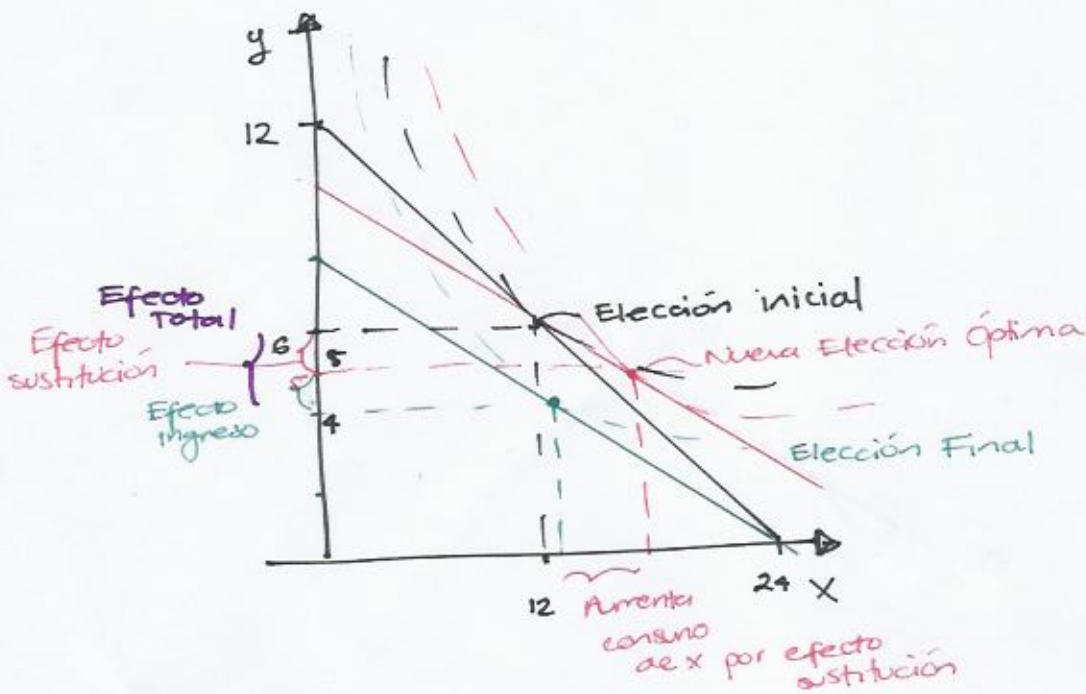 y
12
Efecto
Total
Efecto
sustitución
Efecto
ingreso
6
5
4
Elección inicial
Nueva Elección Óptima
Elección Final
12
24
X
Aumenta
consumo
de x por efecto
sustitución